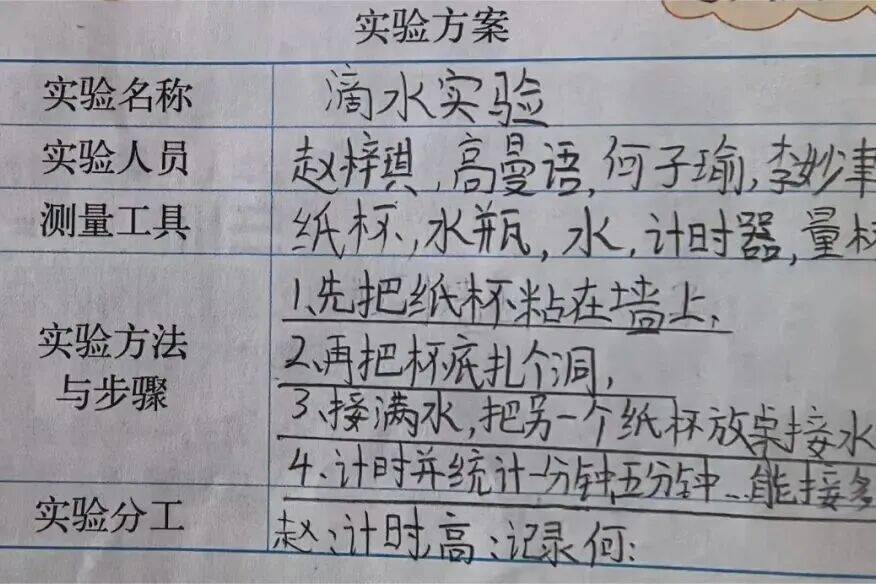 实验方案
实验名称 滴水实验
实验人员 赵梓琪,高曼语,何子瑜,李妙津
测量工具 纸杯,水瓶,水,计时器,量杯
实验方法与步骤
1、先把纸杯粘在墙上,
2、再把杯底扎个洞,
3、接满水,把另一个纸杯放桌接水
4、计时并统计一分钟,五分钟…能接多
实验分工 赵:计时,高:记录何: